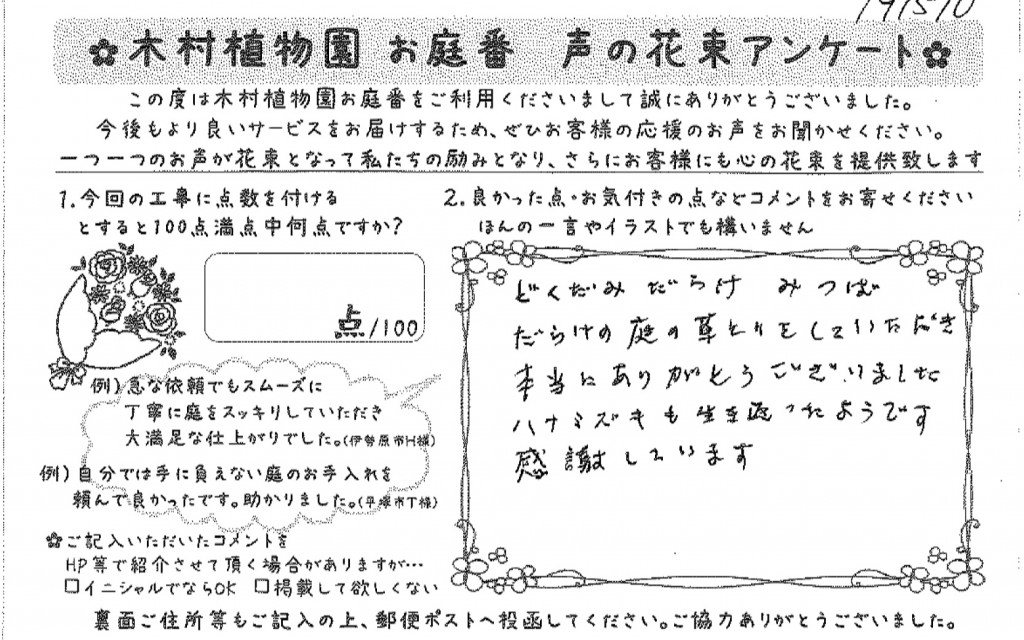 191510
木村植物園 お庭番 声の花束アンケート
この度は木村植物園お庭番をご利用くださいまして誠にありがとうございました。
今後もより良いサービスをお届けするため、ぜひお客様の応援のお声をお聞かせください。
一つ一つのお声が花束となって私たちの励みとなり、さらにお客様にも心の花束を提供致します
1.今回の工事に点数を付ける
とすると100点満点中何点ですか?
点/100
例)急な依頼でもスムーズに
丁寧に庭をスッキリしていただき
大満足な仕上がりでした。(伊勢原市H様)
例)自分では手に負えない庭のお手入れを
頼んで良かったです。助かりました。(平塚市T様)
ご記入いただいたコメントを
HP等で紹介させて頂く場合がありますが…
□イニシャルでならOK □掲載して欲しくない
2.良かった点・お気付きの点などコメントをお寄せください
ほんの一言やイラストでも構いません
どくだみだらけ みつば
だらけの庭の草とりをしていただき
本当にありがとうございました
ハナミズキも生き返ったようです
感謝しています
裏面ご住所等もご記入の上、郵便ポストへ投函してください。ご協力ありがとうございました。